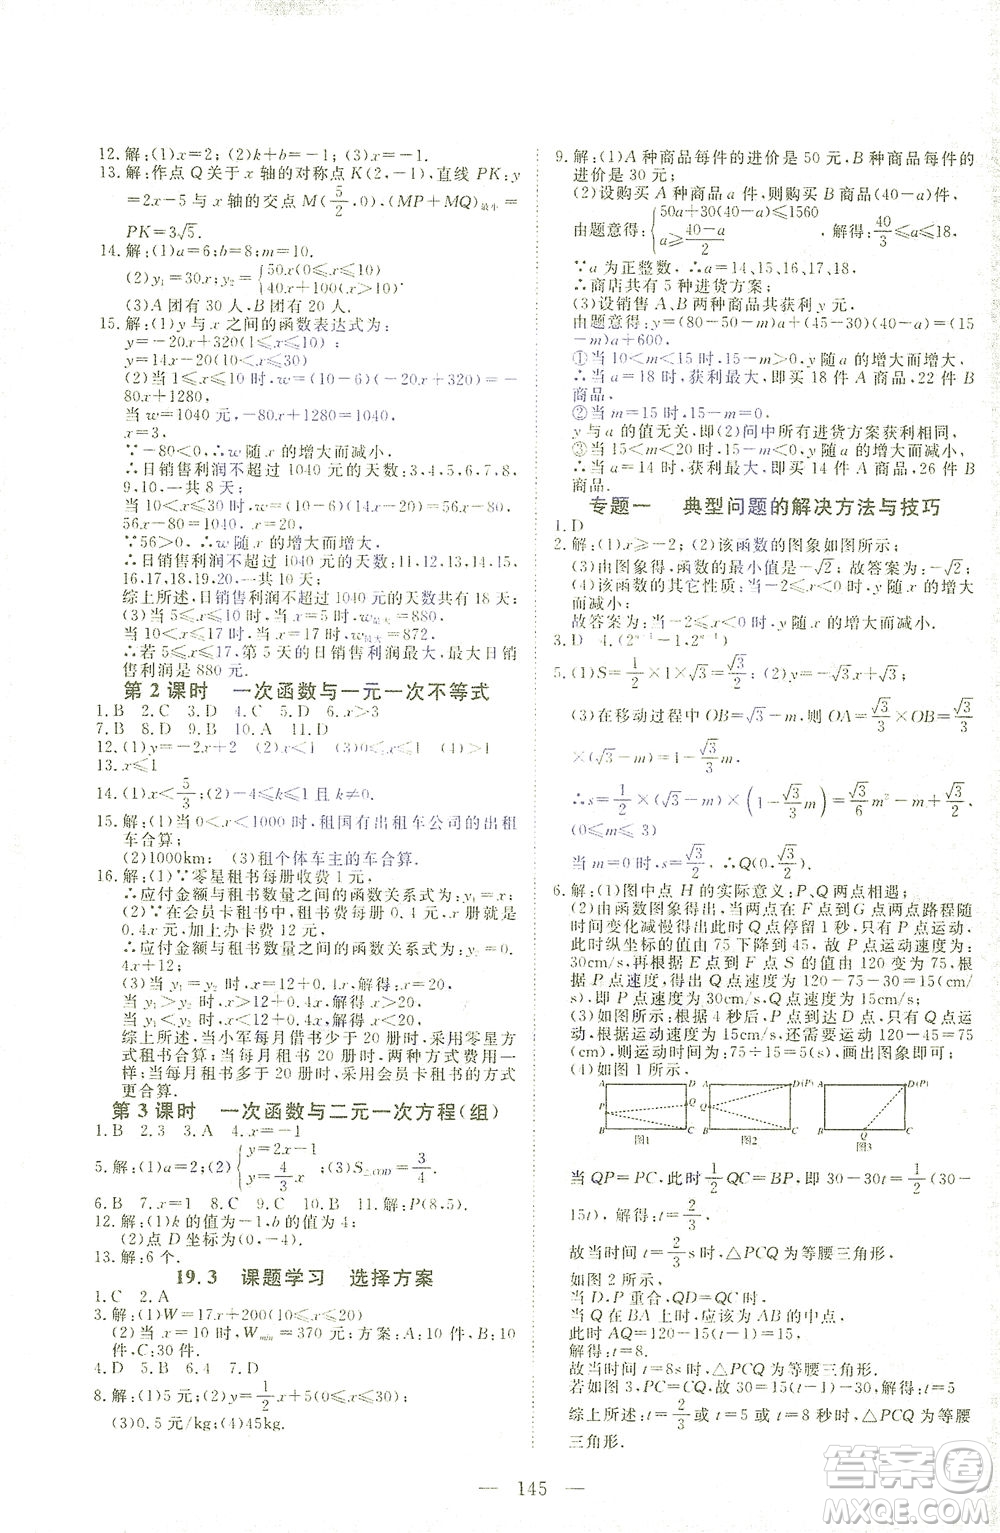 12. 解:(1)x=2; (2)k+b=-1; (3)x<2.
13. 解:作点 Q 关于 x 轴的对称点 K(2,-1),直线 PK:y
=2x-5 与 x 轴的交点 M(5/2,0),(MP+MQ)最小=
PK=3√5.
14. 解:(1)a=6;b=8;m=10.
(3)A 团有 30 人,B 团有 20 人.
15. 解:(1)y 与 x 之间的函数表达式为:
y=-20x+320(1≤x≤10)
y=14x-20(10<x≤30)
(2)当 1≤x≤10 时,w=(10-6)(-20x+320)=
-80x+1280,
当 w=1040 元,-80x+1280=1040,
x=3,
∵-80<0,∴w 随 x 的增大而减小,
∴日销售利润不超过 1040 元的天数:3,4,5,6,7,8,
9,10,一共 8 天;
当 10<x≤30 时,w=(10-6)(14x-20)=
56x-80.
56x-80=1040,x=20.
∵56>0,∴w 随 x 的增大而增大,
∴日销售利润不超过 1040 元的天数:11,12,13,14,15,
16,17,18,19,20,一共 10 天;
综上所述,日销售利润不超过 1040 元的天数共有 18 天;
(3)当 5≤x≤10 时,当 x=5 时,w最大=880;
当 10<x≤17 时,当 x=17 时,w最大=872,
∴若 5≤x≤17,第 5 天的日销售利润最大,最大日销售
利润是 880 元.
第 2 课时 一次函数与一元一次不等式
1. B 2. C 3. A 4. C 5. D 6. x>3
7. B 8. D 9. B 10. A 11. D
12. (1)y=-2x+2 (2)x<1 (3)x≤0 (4)x≤1
13. x≤1
14. (1)x<5/3;(2)-4≤k≤1 且 k≠0.
15. 解:(1)当 0<x<1000 时,租国有出租车公司的出租
车合算;
(2)1000km; (3)租个体车主的车合算.
16. 解:(1)∵零星租书每册收费 1 元,
∴应付金额与租书数量之间的函数关系式为:y₁=x;
(2)∵在会员卡租书中,租书每册 0.4 元,x 册就是
0.4x 元,加上办卡费 12 元,
∴应付金额与租书数量之间的函数关系式为:y₂=0.
4x+12;
(3)当 y₁=y₂ 时,x=12+0.4x,解得:x=20
当 y₁>y₂ 时,x>12+0.4x,解得 x>20
当 y₁<y₂ 时,x<12+0.4x,解得:x<20
综上所述,当小军每月借书少于 20 册时,采用零星
方式租书合算;当每月租书 20 册时,两种方式费用一
样;当每月租书多于 20 册时,采用会员卡租书的方式
更合算.
第 3 课时 一次函数与二元一次方程(组)
1. B 2. 3 3. A 4. x=-1
6. B 7. x=1 8. C 9. C 10. B 11. 解:P(8,5).
12. 解:(1)k 的值为-1,b 的值为 4;
(2)点 D 坐标为(0,-4);
13. 解:6 个.
19.3 课题学习 选择方案
1. C 2. A
3. 解:(1)W=17x+200(10≤x≤20)
(2)当 x=10 时,Wmin=370 元;方案:A:10 件,B:10
件,C:30 件.
4. D 5. D 6. D 7. A
8. 解:(1)5 元;(2)y=1/2x-2.5(x>15);
(3)0.5 元/kg;(4)45kg.
9. 解:(1)A 种商品每件的进价是 50 元,B 种商品每件的
进价是 30 元;
(2)设购买 A 种商品 a 件,则购买 B 商品(40-a)件,
由题意得:{50a+30(40-a)≤1560 a≥(40-a)/2,解得:40/3≤a≤18,
∵a 为正整数,∴a=14、15、16、17、18,
∴商店共有 5 种进货方案;
(3)设销售 A、B 两种商品共获利 y 元,
由题意得:y=(80-50-m)a+(45-30)(40-a)=(15
-m)a+600,
①当 10<m<15 时,15-m>0,y 随 a 的增大而增大,
∴当 a=18 时,获利最大,即买 18 件 A 商品,22 件 B
商品,
②当 m=15 时,15-m=0,
y 与 a 的值无关,即(2)问中所有进货方案获利相同,
③当 15<m<20 时,15-m<0,y 随 a 的增大而减小,
∴当 a=14 时,获利最大,即买 14 件 A 商品,26 件 B
商品.
专题一 典型问题的解决方法与技巧
1. D
2. 解:(1)x≥-2;(2)该函数的图象如图所示;
(3)由图象得,函数的最小值是-√2,故答案为:-√2;
(4)该函数的其它性质:当-2≤x<0 时,y 随 x 的增大
而减小;
故答案为:当-2≤x<0 时,y 随 x 的增大而减小.
5. (1)S=1/2×1×√3/3=√3/6;
(3)在移动过程中 OB=√3-m,则 OA=√3/3×OB=√3/3
×(√3-m)=1-√3/3m.
(0≤m≤√3)
当 m=0 时,
6. 解:(1)图中点 H 的实际意义:P、Q 两点相遇;
(2)由函数图象得出,当两点在 F 点到 G 点两点路程随
时间变化减慢得出此时 Q 点停留 1 秒,只有 P 点运动,
此时纵坐标的值由 75 下降到 45,故 P 点运动速度为:
30cm/s,再根据 E 点到 F 点 S 的值由 120 变为 75,
根据 P 点速度,得出 Q 点速度为 120-75-30=15(cm/
s),即 P 点速度为 30cm/s,Q 点速度为 15cm/s;
(3)如图所示:根据 4 秒后,P 点到达 D 点,只有 Q 点运
动,根据运动速度为 15cm/s,还需要运动 120-45=75
(cm),则运动时间为:75÷15=5(s),画出图象即可;
(4)如图 1 所示,
A D
P
B Q C
图1
A D(P)
Q
B C
图2
A D(P)
B Q C
图3
当 QP=PC,此时 1/2QC=BP,即 30-30t=1/2(30-
15t),解得:t=2/3,
故当时间 t=2/3s 时,△PCQ 为等腰三角形,
如图 2 所示,
当 D、P 重合,QD=QC 时,
当 Q 在 BA 上时,应该为 AB 的中点,
此时 AQ=120-15t=15-15/2,
解得:t=8.
故当时间 t=8s 时,△PCQ 为等腰三角形.
综上所述:t=2/3 或 t=5 或 t=8 秒时,△PCQ 为等腰
三角形.
145
答案圈
MXQE.COM